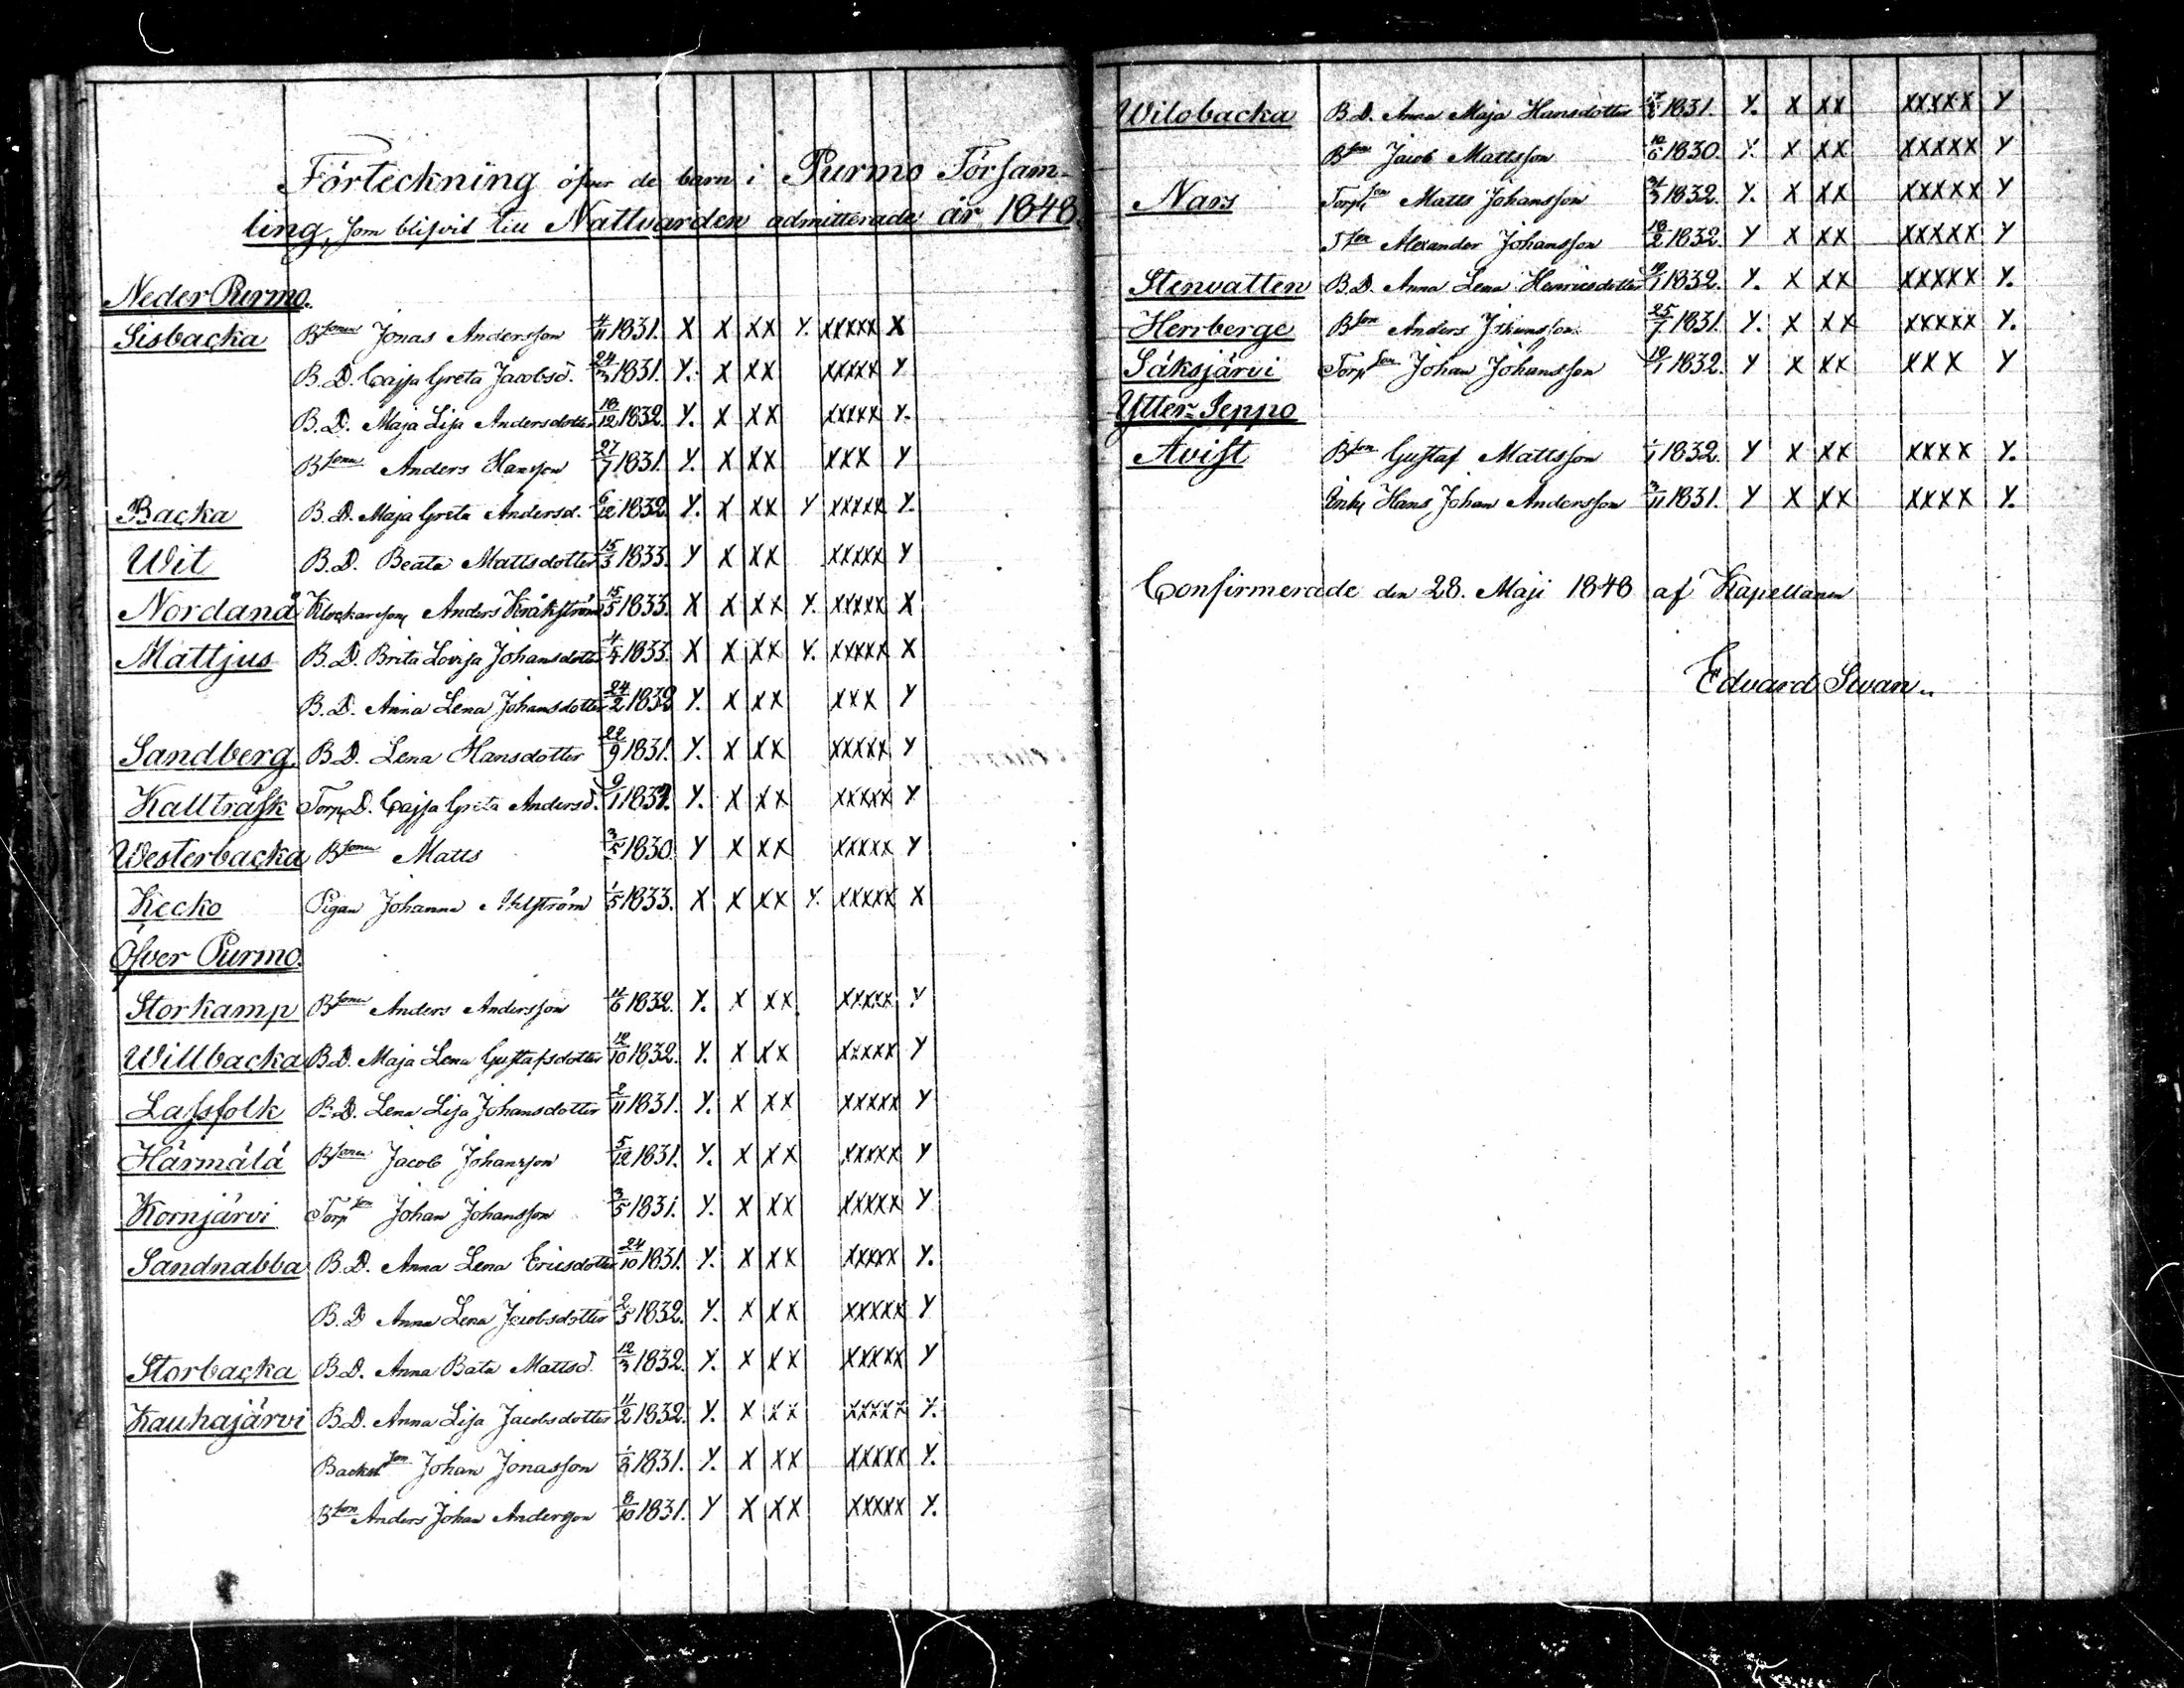 Förteckning öfver de barn i Purmo Försam-
ling, som blifvit till Nattvarden admitterade år 1848.
Neder Purmo.
Sisbacka Bsonen Jonas Andersson 4/11 1831. X X XX Y. XXXXX X
B. D. Cajsa Greta Jacobsd. 24/3 1831. Y. X XX XXXXX Y
B. D. Maja Lisa Andersdotter 18/12 1832. Y. X XX XXXXX Y.
Bsonen Anders Hansson 27/7 1831. Y. X XX XXX Y
Backa B. D. Maja Greta Andersd. 6/12 1832. Y. X XX Y XXXXX Y.
Wit B. D. Beata Mattsdotter 15/3 1833. Y X XX XXXXX Y
Nordanå Klockareson Anders Kråkström 15/5 1833. X X XX Y. XXXXX X
Mattjus B. D. Brita Lovisa Johansdotter 4/4 1833. X X XX Y. XXXXX X
B. D. Anna Lena Johansdotter 24/2 1832 Y. X XX XXX Y
Sandberg. B. D. Lena Hansdotter 22/9 1831. Y. X XX XXXXX Y
Kallträsk Torp. D. Cajsa Greta Andersd. 9/1 1832. Y. X XX XXXXX Y
Westerbacka Bsonen Matts 3/5 1830. Y X XX XXXXX Y
Kecko Pigan Johanna 1/5 1833. X X XX Y. XXXXX X
Öfver Purmo.
Storkamp Bsonen Anders Andersson 11/6 1832. Y. X XX XXXXX Y
Willbacka B. D. Maja Lena Gustafsdotter 12/10 1832. Y. X XX XXXXX Y
Lassfolk B. D. Lena Lisa Johansdotter 2/11 1831. Y. X XX XXXXX Y
Härmälä Bsonen Jacob Johansson 5/12 1831. Y. X XX XXXXX Y
Kornjärvi Torpson Johan Johansson 3/5 1831. Y. X XX XXXXX Y
Sandnabba B. D. Anna Lena Ericsdotter 24/10 1831. Y. X XX XXXXX Y.
B. D Anna Lena Jacobsdotter 2/5 1832. Y. X XX XXXXX Y
Storbacka B. D. Anna Bata Mattsd. 12/3 1832. Y. X XX XXXXX Y
Kauhajärvi B. D. Anna Lisa Jacobsdotter 11/2 1832. Y. X XX XXXXX Y.
Backstson Johan Jonasson 1/8 1831. Y. X XX XXXXX Y.
Bson Anders Johan Andersson 8/10 1831. Y X XX XXXXX Y.
Wilobacka B. D. Anna Maja Hansdotter 1831. Y. X XX XXXXX Y
Bson Jacob Mattsson 1830. Y. X XX XXXXX Y
Nars Torpson Matts Johansson 1832. Y. X XX XXXXX Y
Tson Alexander Johansson 18/2 1832. Y X XX XXXXX Y
Stenvatten B. D. Anna Lena Henricsdotter 1832. Y. X XX XXXXX Y.
Herrberge Bson Anders 25/7 1831. Y. X XX XXXXX Y.
Säksjärvi Torpson Johan Johansson 1832. Y X XX XXX Y
Ytter-Jeppo
Avist Bson Gustaf Mattsson 1/1 1832. Y X XX XXXX Y.
Enk. Hans Johan Andersson 3/11 1831. Y X XX XXXX Y.
Confirmerade den 28. Maji 1848 af Kapellanen
Edvard Svan.